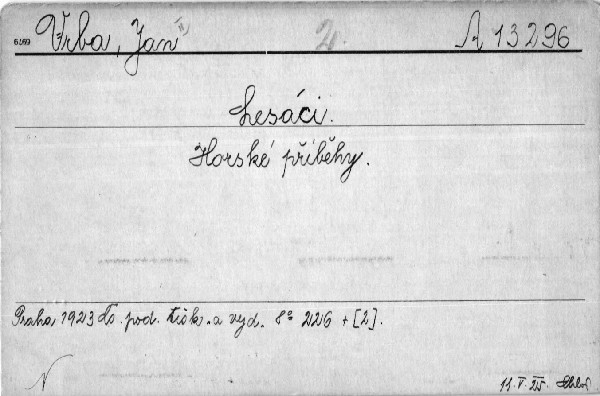 6269 Vrba, Jan 2. A 13296
Lesáci.
Horské příběhy.
Praha 1923 Čs. pod. tisk. a vyd. 8° 226 + [2].
11. V. 25.